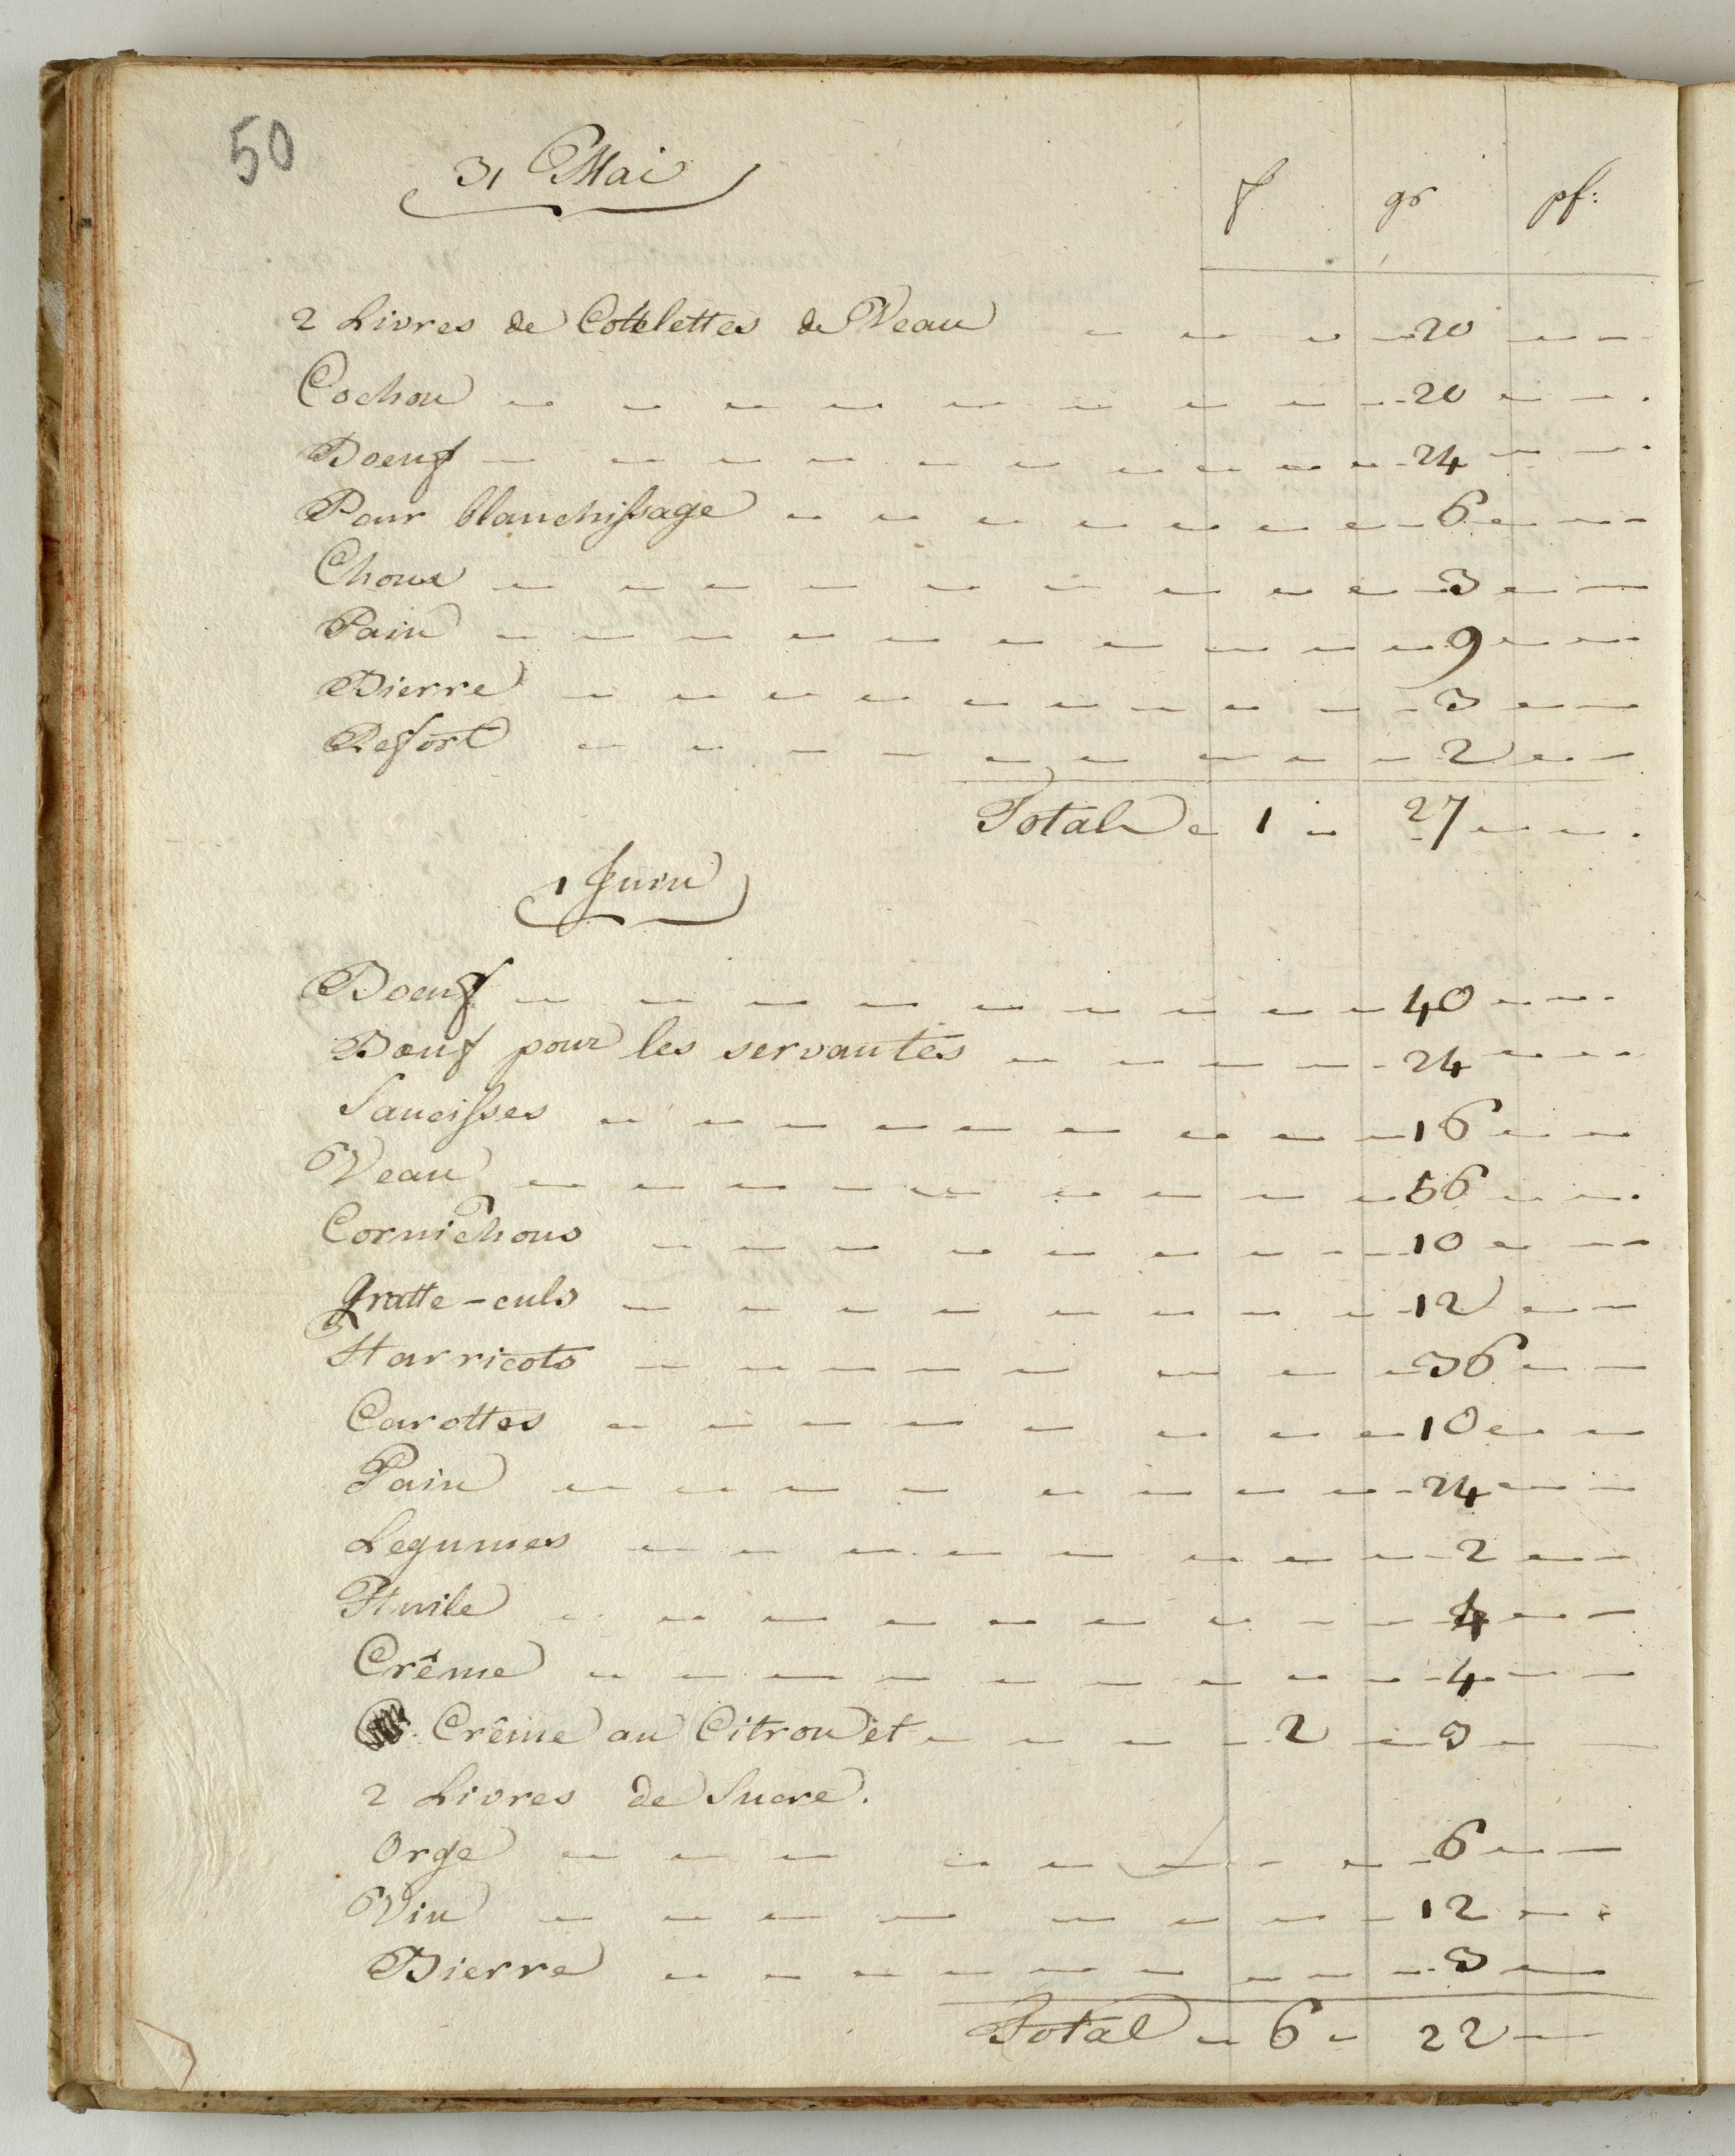 50
31 Mai
f gr pf:
2 Livres de Cottelettes de Veau - - - - 20 - -
Cochon - - - - - - - - - - 20 - - -
Boeuf - - - - - - - - - - 24 - - -
Pour blanchissage - - - - - - - - 6 - - -
Choux - - - - - - - - - 3 - - -
Pain - - - - - - - - - - 9 - - -
Bierre - - - - - - - - - - 3 - - -
Refort - - - - - - - - - 2 - -
Total - 1 - 27 - - -
1 Juin
Boeuf - - - - - - - - - 40 - - -
Boeuf pour les servantes - - - - - 24 - - -
Saucisses - - - - - - - - - 16 - -
Veau - - - - - - - - - 56 - -
Cornichons - - - - - - - - - 10 - - -
Gratte-culs - - - - - - - - 12 - -
Harricots - - - - - - - - 36 - -
Carottes - - - - - - - - 10 - -
Pain - - - - - - - - - 24 - -
Legumes - - - - - - - - - 2 - -
Huile - - - - - - - - - - 4 - -
Crême - - - - - - - - - - 4 - -
Crême au Citron et - - - - 2 - 3 - -
2 Livres de Sucre.
Orge - - - - - - - - 6 - -
Vin - - - - - - - - 12 - -
Bierre - - - - - - - - - 3 - -
Total - 6 - 22 -